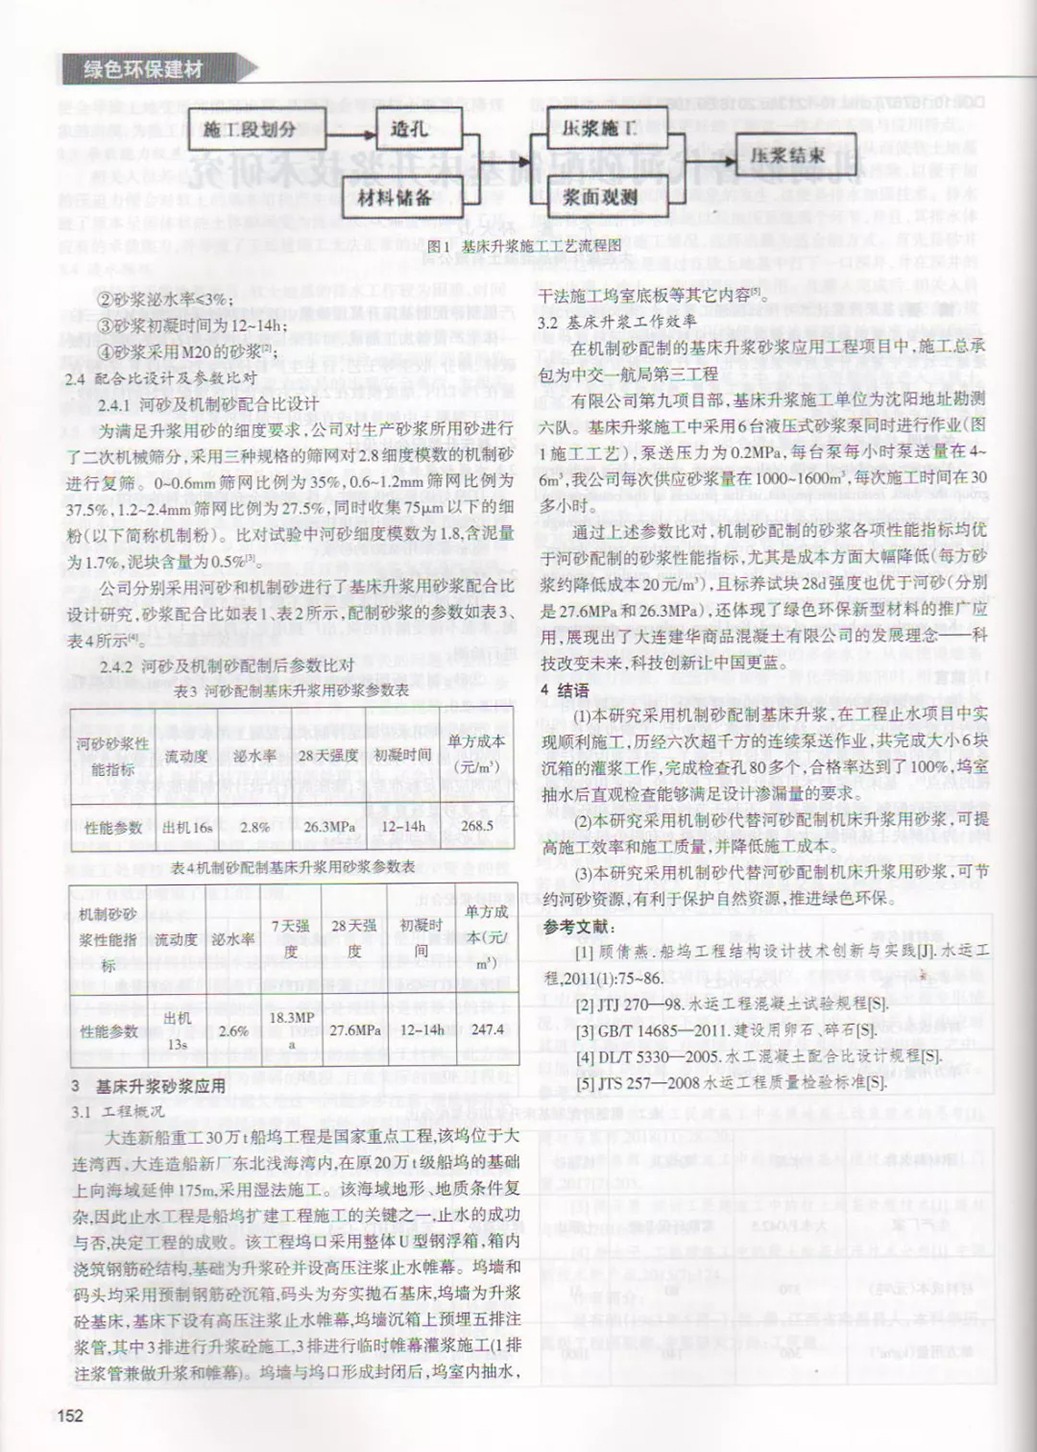 绿色环保建材
施工段划分
造孔
材料储备
压浆施工
浆面观测
压浆结束
图1 基床升浆施工工艺流程图
②砂浆泌水率≤3%；
③砂浆初凝时间为12~14h；
④砂浆采用M20的砂浆[2]；
2.4 配合比设计及参数比对
2.4.1 河砂及机制砂配合比设计
为满足升浆用砂的细度要求，公司对生产砂浆所用砂进行
了二次机械筛分，采用三种规格的筛网对2.8细度模数的机制砂
进行复筛。0~0.6mm筛网比例为35%，0.6~1.2mm筛网比例为
37.5%，1.2~2.4mm筛网比例为27.5%，同时收集75μm以下的细
粉（以下简称机制粉）。比对试验中河砂细度模数为1.8，含泥量
为1.7%，泥块含量为0.5%[3]。
公司分别采用河砂和机制砂进行了基床升浆用砂浆配合比
设计研究，砂浆配合比如表1、表2所示，配制砂浆的参数如表3、
表4所示[4]。
2.4.2 河砂及机制砂配制后参数比对
表3 河砂配制基床升浆用砂浆参数表
河砂砂浆性
能指标
流动度
泌水率
28天强度
初凝时间
单方成本
(元/m³)
性能参数
出机16s
2.8%
26.3MPa
12-14h
268.5
表4机制砂配制基床升浆用砂浆参数表
机制砂砂
浆性能指
标
流动度
泌水率
7天强
度
28天强
度
初凝时
间
单方成
本(元/
m³)
性能参数
出机
13s
2.6%
18.3MP
a
27.6MPa
12-14h
247.4
3 基床升浆砂浆应用
3.1 工程概况
大连新船重工30万t船坞工程是国家重点工程，该坞位于大
连湾西，大连造船新厂东北浅海湾内，在原20万t级船坞的基础
上向海域延伸175m，采用湿法施工。该海域地形、地质条件复
杂，因此止水工程是船坞扩建工程施工的关键之一，止水的成功
与否，决定工程的成败。该工程坞口采用整体U型钢浮箱，箱内
浇筑钢筋砼结构，基础为升浆砼并设高压注浆止水帷幕。坞墙和
码头均采用预制钢筋砼沉箱，码头为夯实抛石基床，坞墙为升浆
砼基床，基床下设有高压注浆止水帷幕，坞墙沉箱上预埋五排注
浆管，其中3排进行升浆砼施工，3排进行临时帷幕灌浆施工(1排
注浆管兼做升浆和帷幕)。坞墙与坞口形成封闭后，坞室内抽水，
干法施工坞室底板等其它内容[5]。
3.2 基床升浆工作效率
在机制砂配制的基床升浆砂浆应用工程项目中，施工总承
包为中交一航局第三工程
有限公司第九项目部，基床升浆施工单位为沈阳地址勘测
六队。基床升浆施工中采用6台液压式砂浆泵同时进行作业(图
1施工工艺)，泵送压力为0.2MPa，每台泵每小时泵送量在4~
6m³，我公司每次供应砂浆量在1000~1600m³，每次施工时间在30
多小时。
通过上述参数比对，机制砂配制的砂浆各项性能指标均优
于河砂配制的砂浆性能指标，尤其是成本方面大幅降低(每方砂
浆约降低成本20元/m³)，且标养试块28d强度也优于河砂(分别
是27.6MPa和26.3MPa)，还体现了绿色环保新型材料的推广应
用，展现出了大连建华商品混凝土有限公司的发展理念——科
技改变未来，科技创新让中国更蓝。
4 结语
(1)本研究采用机制砂配制基床升浆，在工程止水项目中实
现顺利施工，历经六次超千方的连续泵送作业，共完成大小6块
沉箱的灌浆工作，完成检查孔80多个，合格率达到了100%，坞室
抽水后直观检查能够满足设计渗漏量的要求。
(2)本研究采用机制砂代替河砂配制机床升浆用砂浆，可提
高施工效率和施工质量，并降低施工成本。
(3)本研究采用机制砂代替河砂配制机床升浆用砂浆，可节
约河砂资源，有利于保护自然资源，推进绿色环保。
参考文献：
[1] 顾倩燕.船坞工程结构设计技术创新与实践[J].水运工
程,2011(1):75~86.
[2] JTJ 270—98.水运工程混凝土试验规程[S].
[3] GB/T 14685—2011.建设用卵石、碎石[S].
[4] DL/T 5330—2005.水工混凝土配合比设计规程[S].
[5] JTS 257—2008水运工程质量检验标准[S].
152